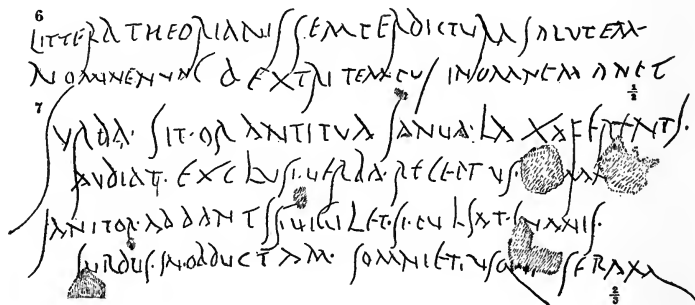 6
LITTERA THEORIANIS SEMPER DICTVRA SALVTEM
NOMINE NVNC DEXTRI TEMPVS IN OMNE MANET
1/2
7
SVRDA· SIT· ORANTI TVA IANVA· LAXA FERENTI·
AVDIAT· EXCLVSI· VERBA· RECEPTVS·
IANITOR· AD DANTIS VIGILET· SI· PVLSAT· INANIS·
SVRDVS· IN· OBDVCTAM· SOMNIET· SERAM
2/3